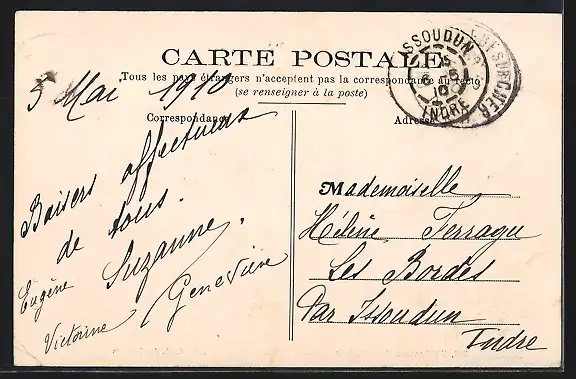 CARTE POSTALE
Tous les pays étrangers n'acceptent pas la correspondance au recto
(se renseigner à la poste)
Correspondance
Adresse
5 Mai 1910
Baisers affectueux
de tous.
Eugène Suzanne.
Victorine Geneviève
Mademoiselle
Hélène Ferragu
Les Bordes
Par Issoudun
Indre
ISSOUDUN
10
INDRE